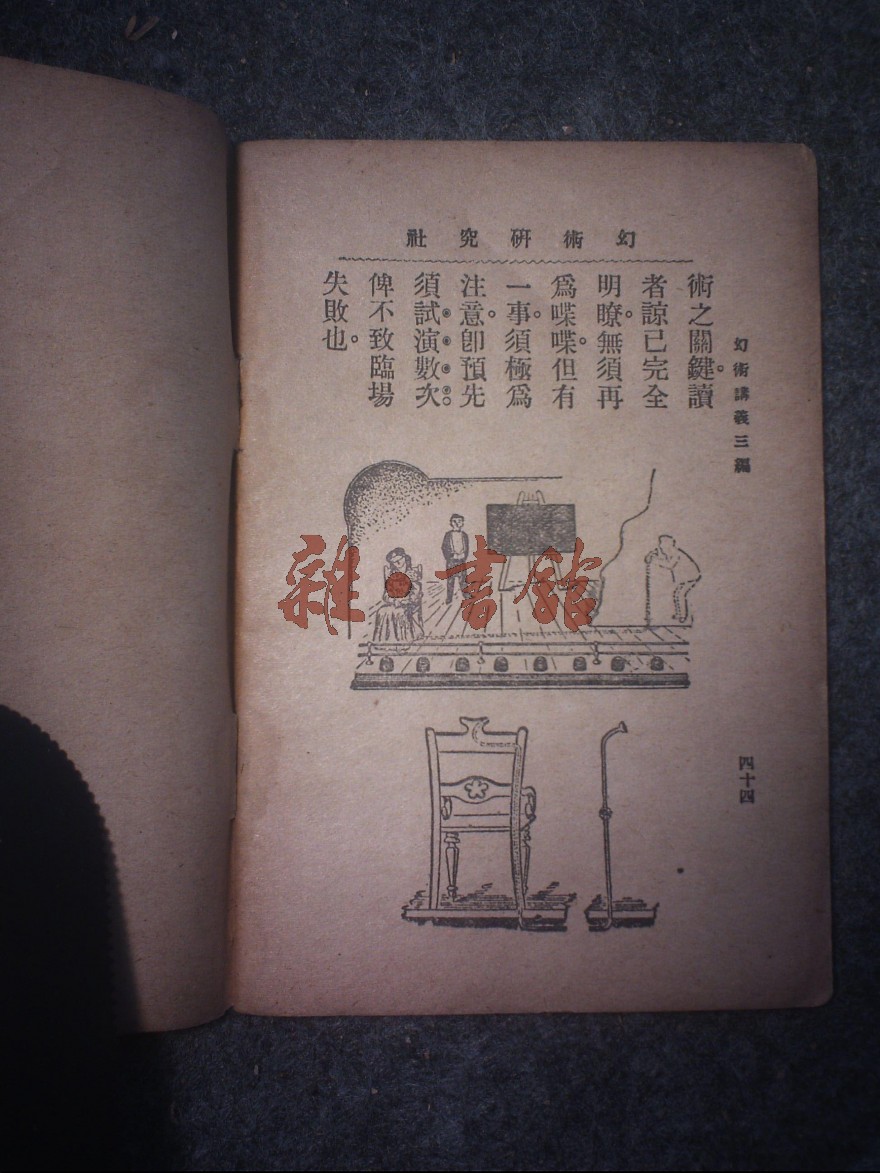 幻術研究社
幻術講義三編
術之關鍵。讀
者諒已完全
明瞭。無須再
為喋喋。但有
一事。須極為
注意。卽預先
須試演數次。
俾不致臨場
失敗也。
四十四
雜·書館